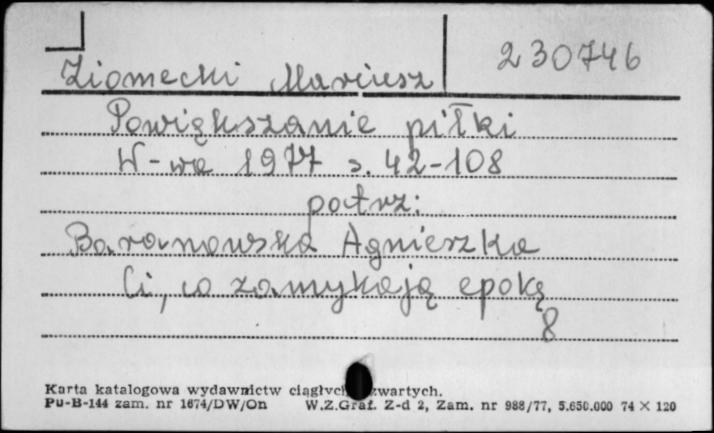 Ziomecki Mariusz
230746
Powiększanie piłki
W-wa 1977 s. 42-108
patrz:
Baranowska Agnieszka
Ci, co zamykają epokę
8
Karta katalogowa wydawnictw ciągłych zwartych.
PU-B-144 zam. nr 1674/DW/On W.Z.Graf. Z-d 2, Zam. nr 988/77, 5.650.000 74 X 120